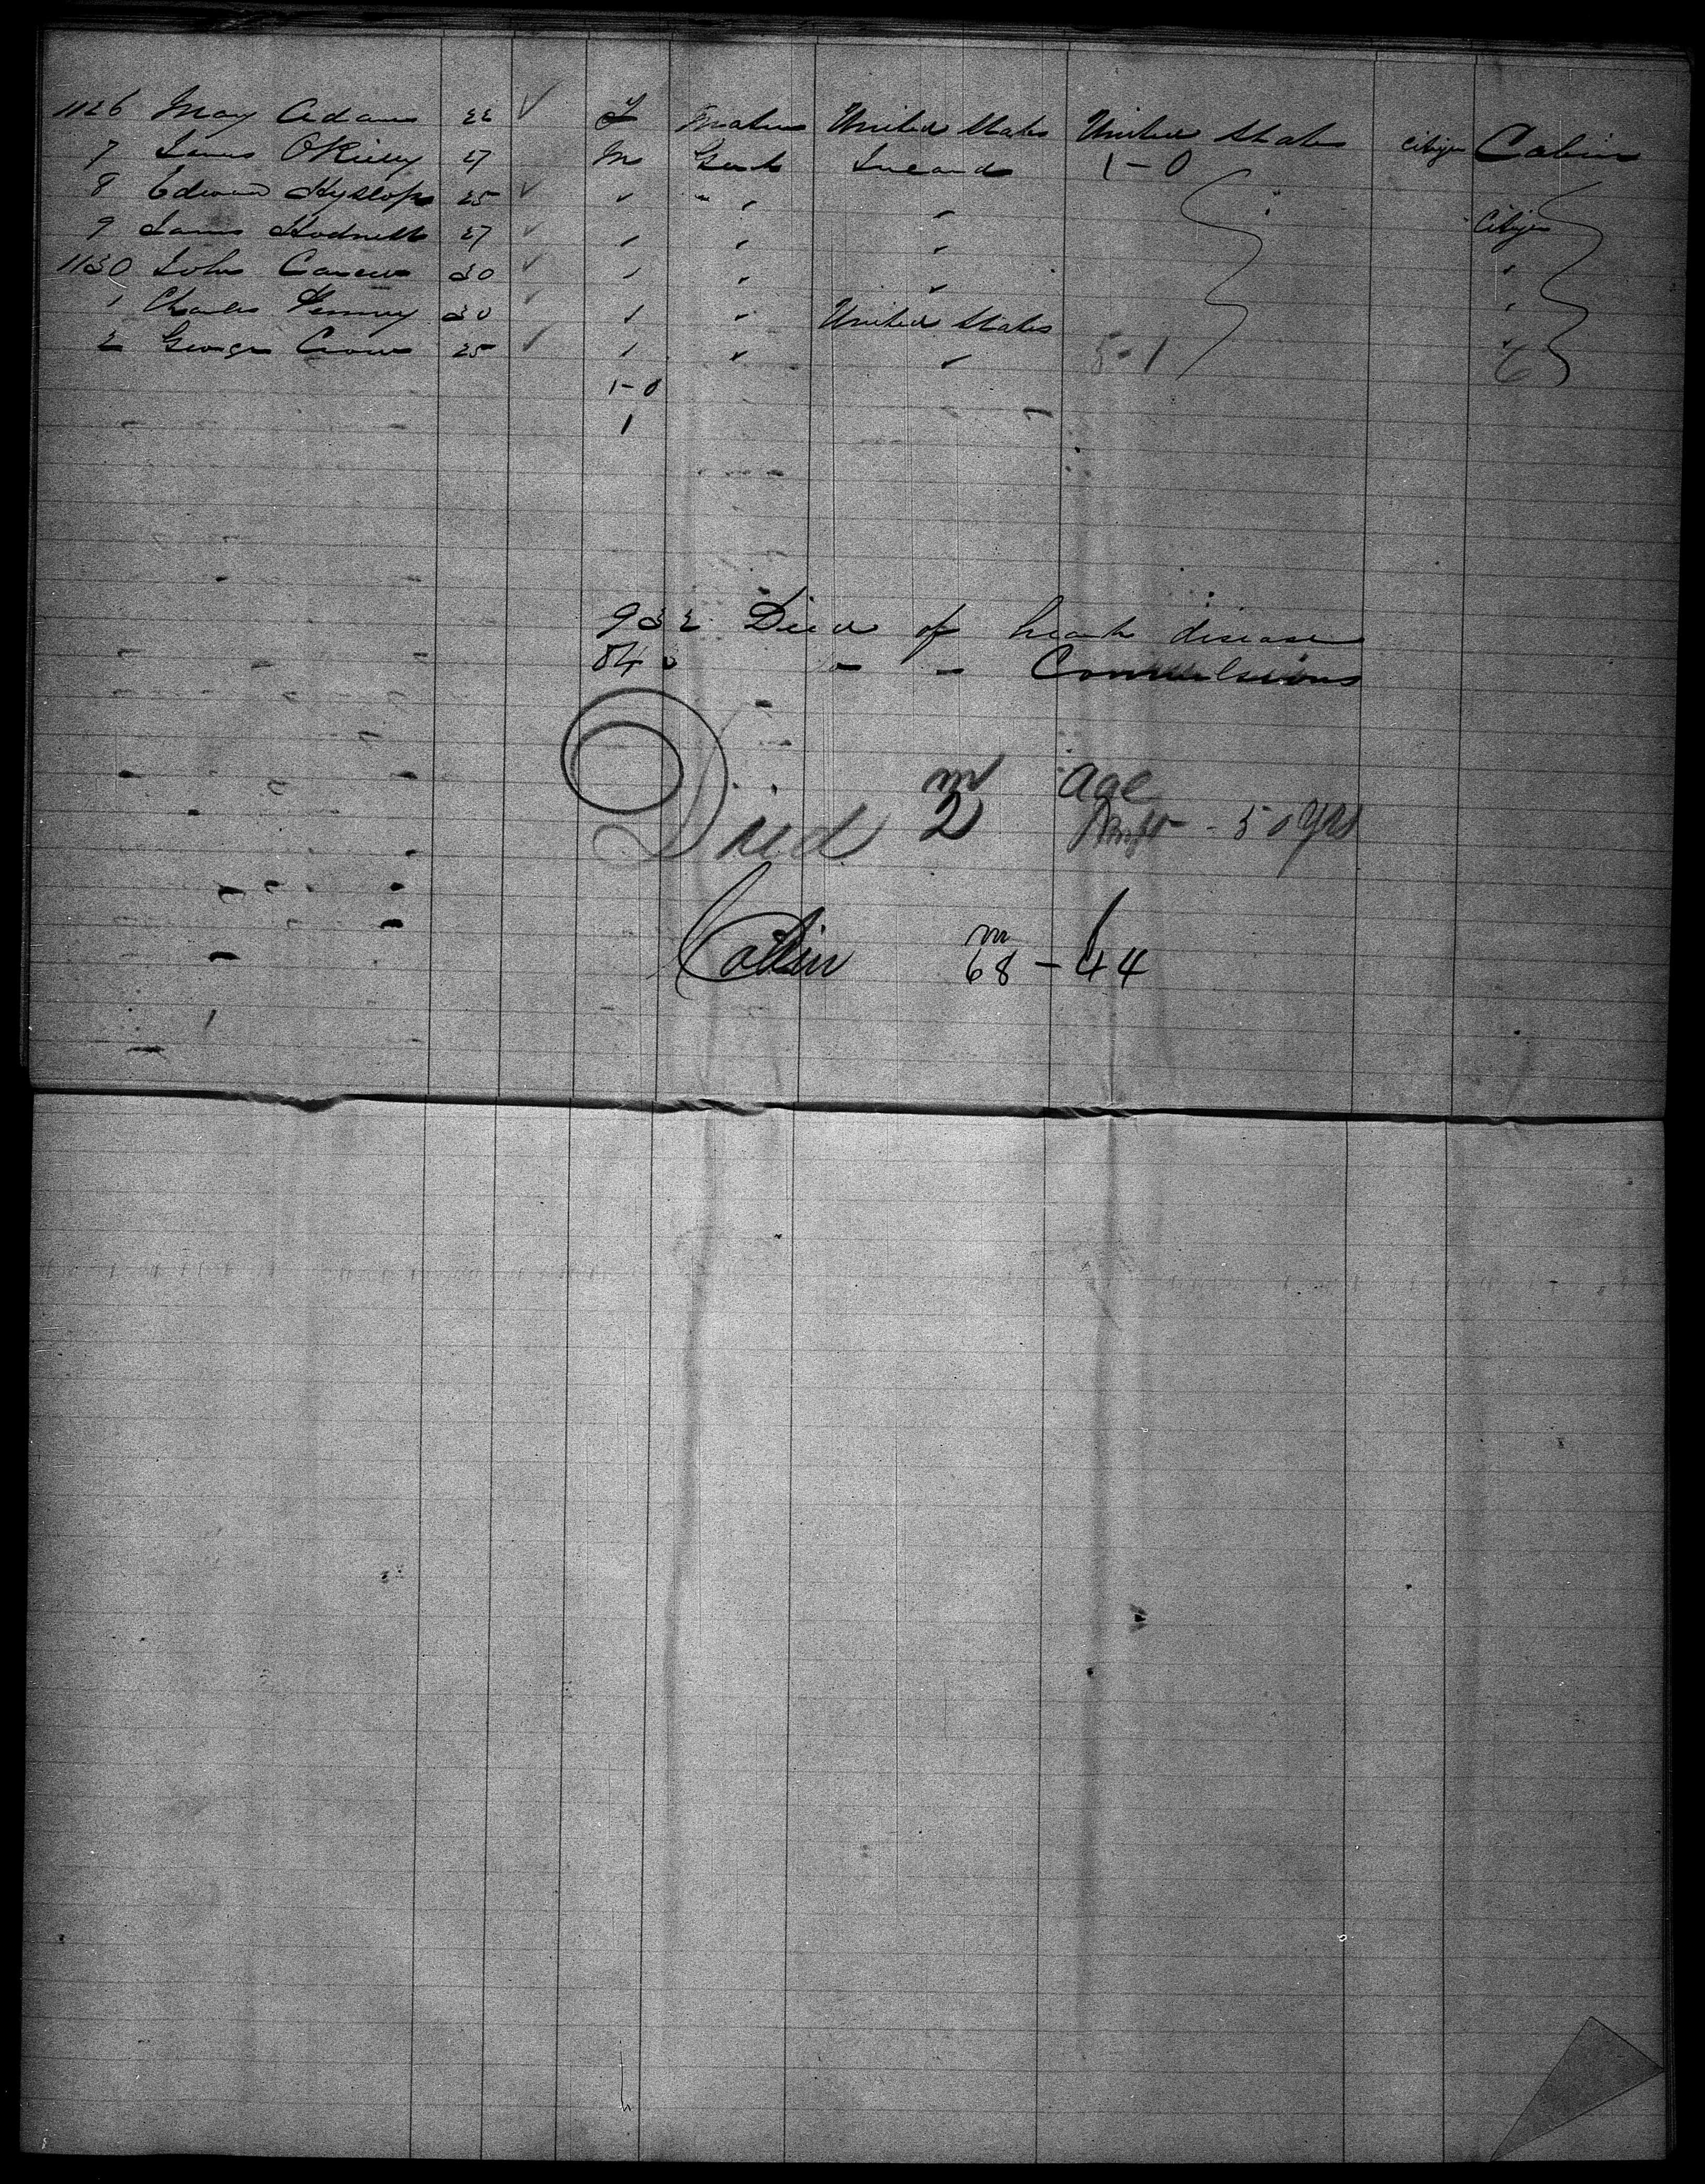 1126 May Adams 22 ✓ F Matron United States United States Citizen Cabin
7 James O'Reilly 27 M Gent Ireland 1-0
8 Edward Hyslop 25 ✓ " " " " Citizen
9 James Hodnett 27 ✓ " " " "
1130 John Carew 30 ✓ " " " "
1 Charles 30 ✓ " " United States "
2 George Crow 25 ✓ " " " 5-1 " 6
1-0
1
932 Died of heart disease
840 " " Convulsions
m age
Died 2 - 50 yrs
m f
Cabin 68 - 44